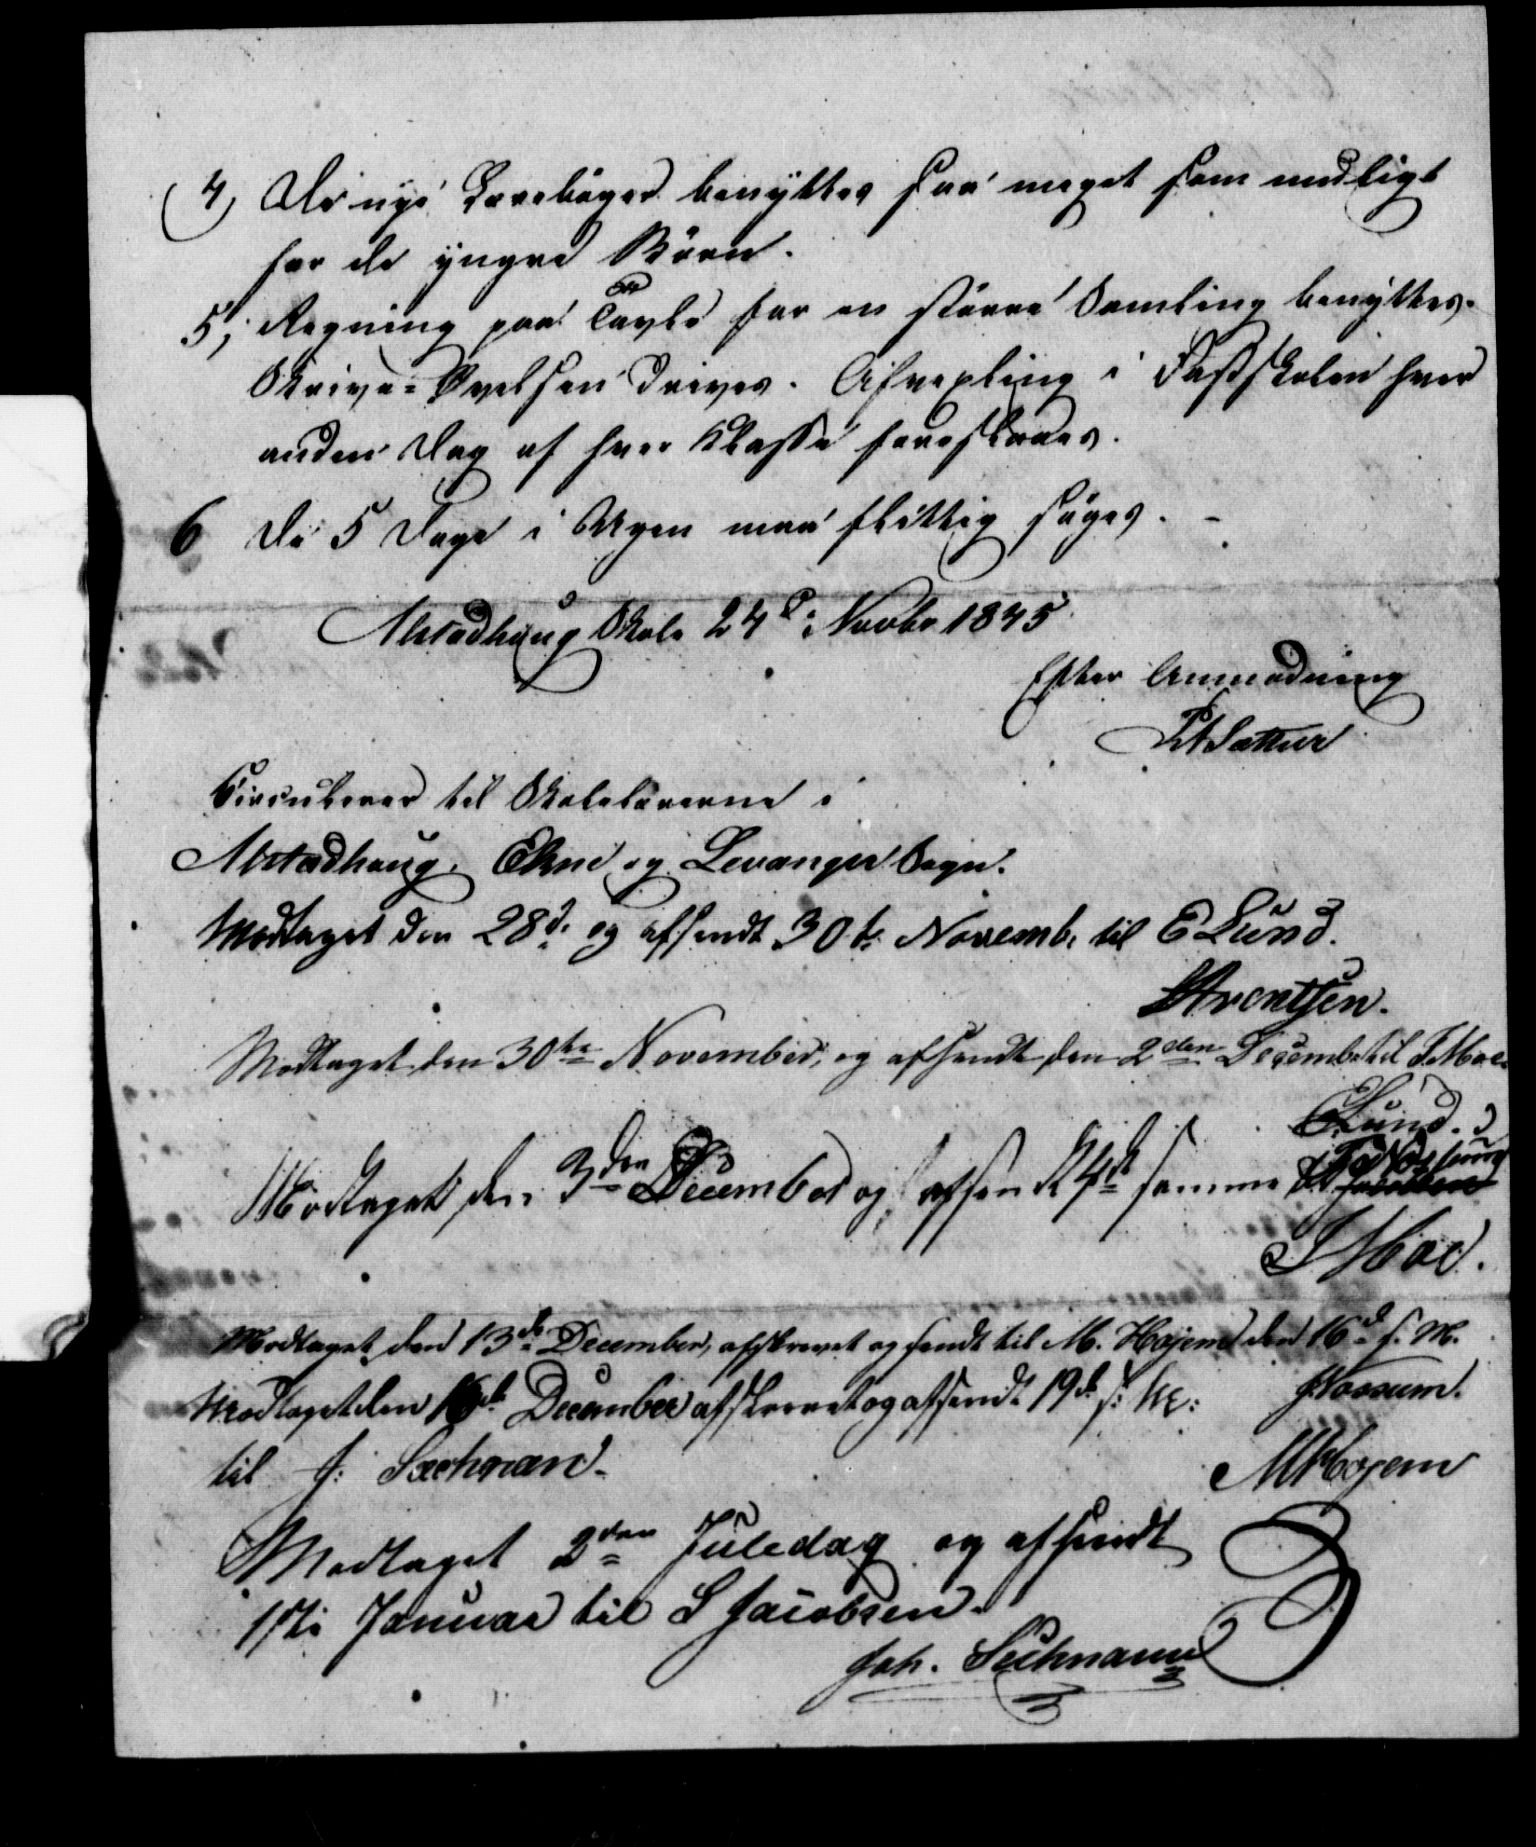 4, De nye Lærebøger benyttes saa meget som muligt
for de yngre Børn.
5, Regning paa Tavle for en større Samling benyttes.
Skrive-Øvelsen drives. Afvexling i Fastskolen hver
anden Dag af hver Klasse foreslaaes.
6 De 5 Dage i Ugen maa flittig søges. -
Alstadhaug Skole 24d Novbr 1845
Efter Anmodning
Circulerer til Skolelærerne i
Alstadhaug, Ekne og Levanger Sogn.
Modtaget den 28d. og afsendt 30te Novemb. til E Lund.
Arentsen.
Modtaget den 30te November, og afsendt den 2den Decemb. til J. Moe.
E Lund.
Modtaget den 3den December og afsendt 4de samme
J Moe.
Modtaget den 13de December, afskrevet og sendt til M. Højem den 16d s. M.
Modtaget den 16de December afskrevet og afsendt 19de s: M:
til J: Sechman.
M Højem
Modtaget 2den Juledag og afsendt
1ste Januar til S Jacobsen.
Joh. Sechmann